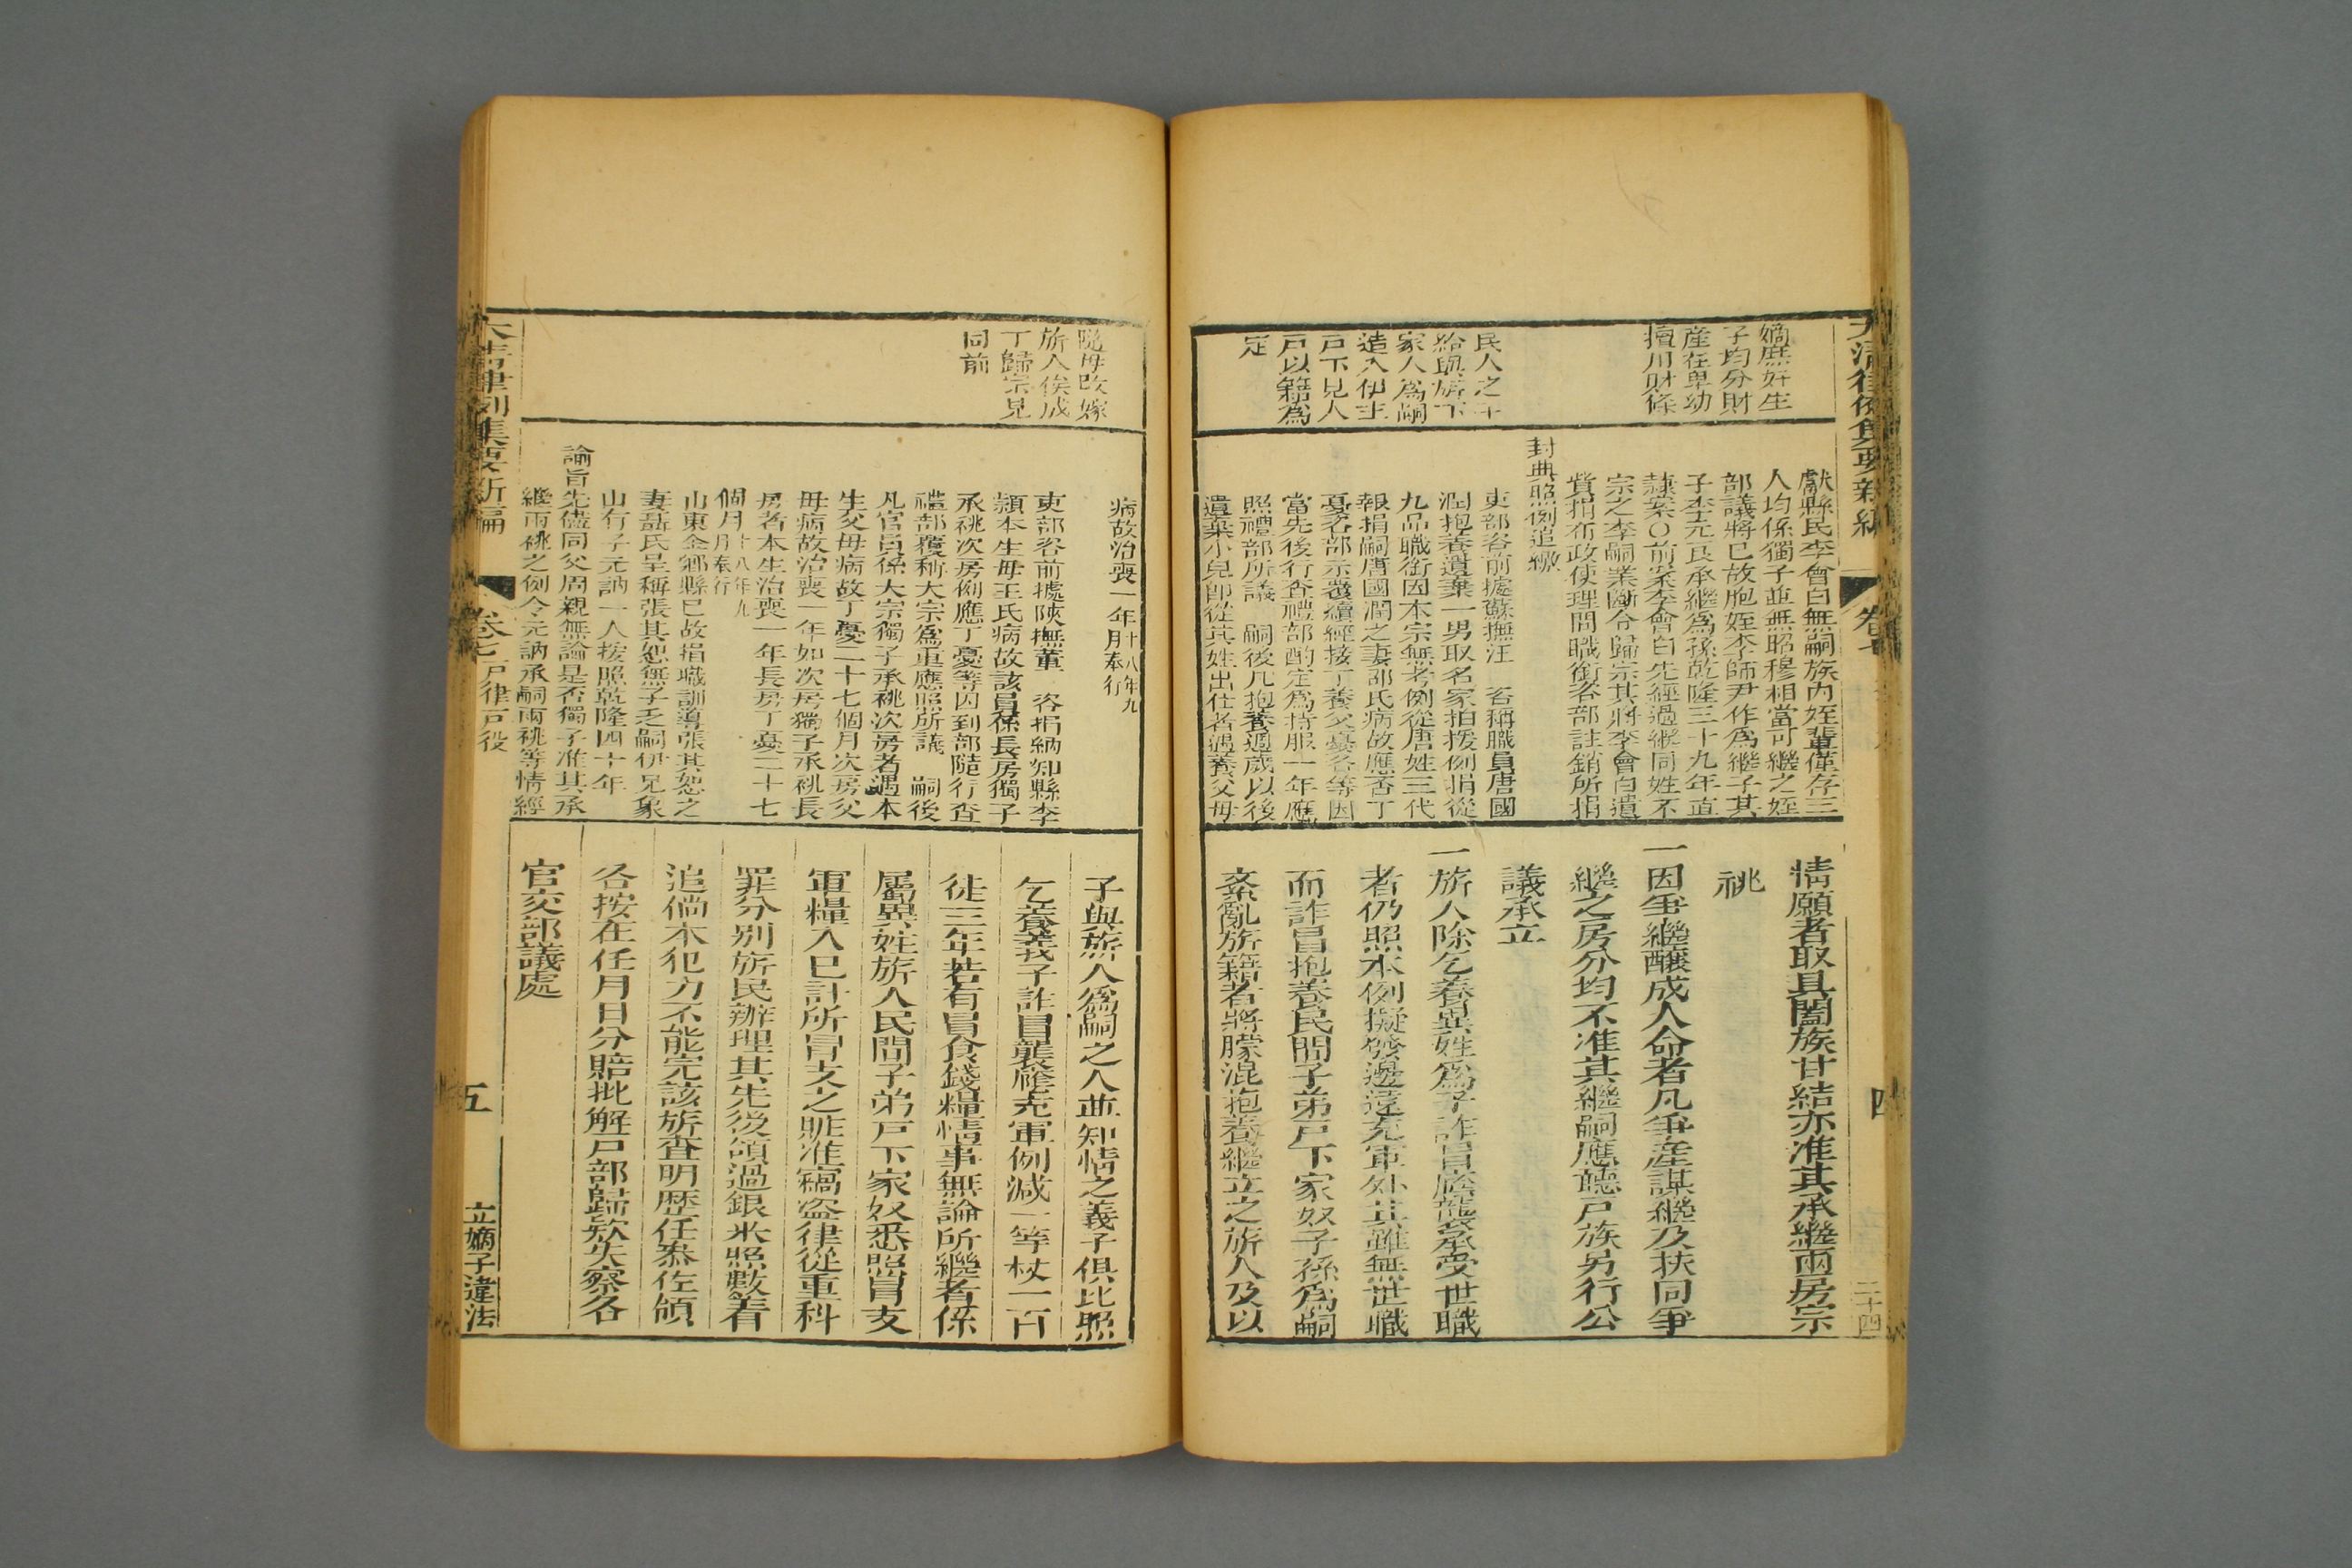 大清律例集要新編
卷七
四
嫡庶奸生
子均分財
產在卑幼
擅用財條
民人之子
給與旂下
家人為嗣
造入伊主
戶下見人
戶以籍為
定
獻縣民李會白無嗣族內姪輩僅存三
人均係獨子並無昭穆相當可繼之姪
部議將已故胞姪李師尹作為繼子其
子李元良承繼為孫乾隆三十九年直
隸案〇前案李會白先經過繼同姓不
宗之李嗣業斷令歸宗其將李會白遺
貲捐布政使理問職銜咨部註銷所捐
封典照例追繳
吏部咨前據蘇撫汪 咨稱職員唐國
潤抱養遺棄一男取名家拍援例捐從
九品職銜因本宗無考例從唐姓三代
報捐嗣唐國潤之妻邵氏病故應否丁
憂咨部示覆續經接丁養父憂各等因
當先後行查禮部酌定為持服一年應
照禮部所議 嗣後凡抱養週歲以後
遺棄小兒即從其姓出仕者遇養父母
情願者取具闔族甘結亦准其承繼兩房宗
祧
一因爭繼釀成人命者凡爭產謀繼及扶同爭
繼之房分均不准其繼嗣應聽戶族另行公
議承立
一旂人除乞養異姓為子詐冒廕襲承受世職
者仍照本例擬發邊遠充軍外其雖無世職
而詐冒抱養民間子弟戶下家奴子孫為嗣
紊亂旂籍者將朦混抱養繼立之旂人及以
晚母改嫁
旂人俟成
丁歸宗見
同前
病故治喪一年十八年九月奉行
吏部咨前據陝撫董 咨捐納知縣李
潁本生母王氏病故該員係長房獨子
承祧次房例應丁憂等因到部隨行查
禮部覆稱大宗為重應照所議 嗣後
凡官員係大宗獨子承祧次房者遇本
生父母病故丁憂二十七個月次房父
母病故治喪一年如次房獨子承祧長
房者本生治喪一年長房丁憂二十七
個月十八年九月奉行
山東金鄉縣已故捐職訓導張其恕之
妻聶氏呈稱張其恕無子乏嗣伊兄象
山有子元訥一人援照乾隆四十年
諭旨先儘同父周親無論是否獨子准其承
繼兩祧之例令元訥承嗣兩祧等情經
子與旂人為嗣之人並知情之義子俱比照
乞養義子詐冒襲廕充軍例減一等杖一百
徒三年若有冒食錢糧情事無論所繼者係
屬異姓旂人民間子弟戶下家奴悉照冒支
軍糧入已計所冒支之贓准竊盜律從重科
罪分別旂民辦理其先後領過銀米照數着
追倘本犯力不能完該旂查明歷任叅佐領
各按在任月日分賠批解戶部歸欵失察各
官交部議處
大清律例集要新編
卷七 戶律戶役
五
立嫡子違法